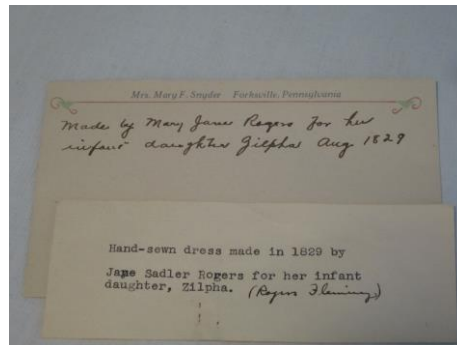 Mrs. Mary F. Snyder Forksville, Pennsylvania
Made by Mary Jane Rogers for her
infant daughter Zilpha Aug 1829
Hand-sewn dress made in 1829 by
Jane Sadler Rogers for her infant
daughter, Zilpha. (Rogers Fleming)